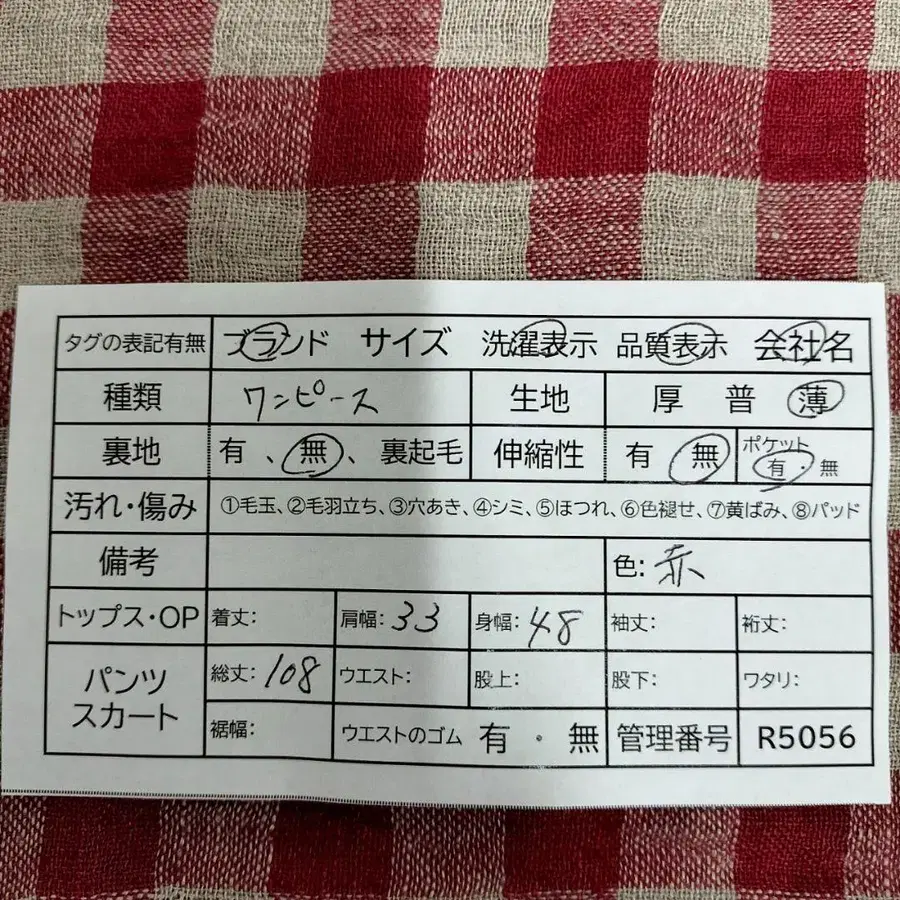 タグの表記有無 ブランド サイズ 洗濯表示 品質表示 会社名
種類 ワンピース 生地 厚 普 薄
裏地 有 、 無 、 裏起毛 伸縮性 有 無 ポケット
有 ・ 無
汚れ・傷み ①毛玉、②毛羽立ち、③穴あき、④シミ、⑤ほつれ、⑥色褪せ、⑦黄ばみ、⑧パッド
備考 色: 赤
トップス・OP 着丈: 肩幅: 33 身幅: 48 袖丈: 裄丈:
パンツ
スカート
総丈: 108 ウエスト: 股上: 股下: ワタリ:
裾幅: ウエストのゴム 有 ・ 無 管理番号 R5056